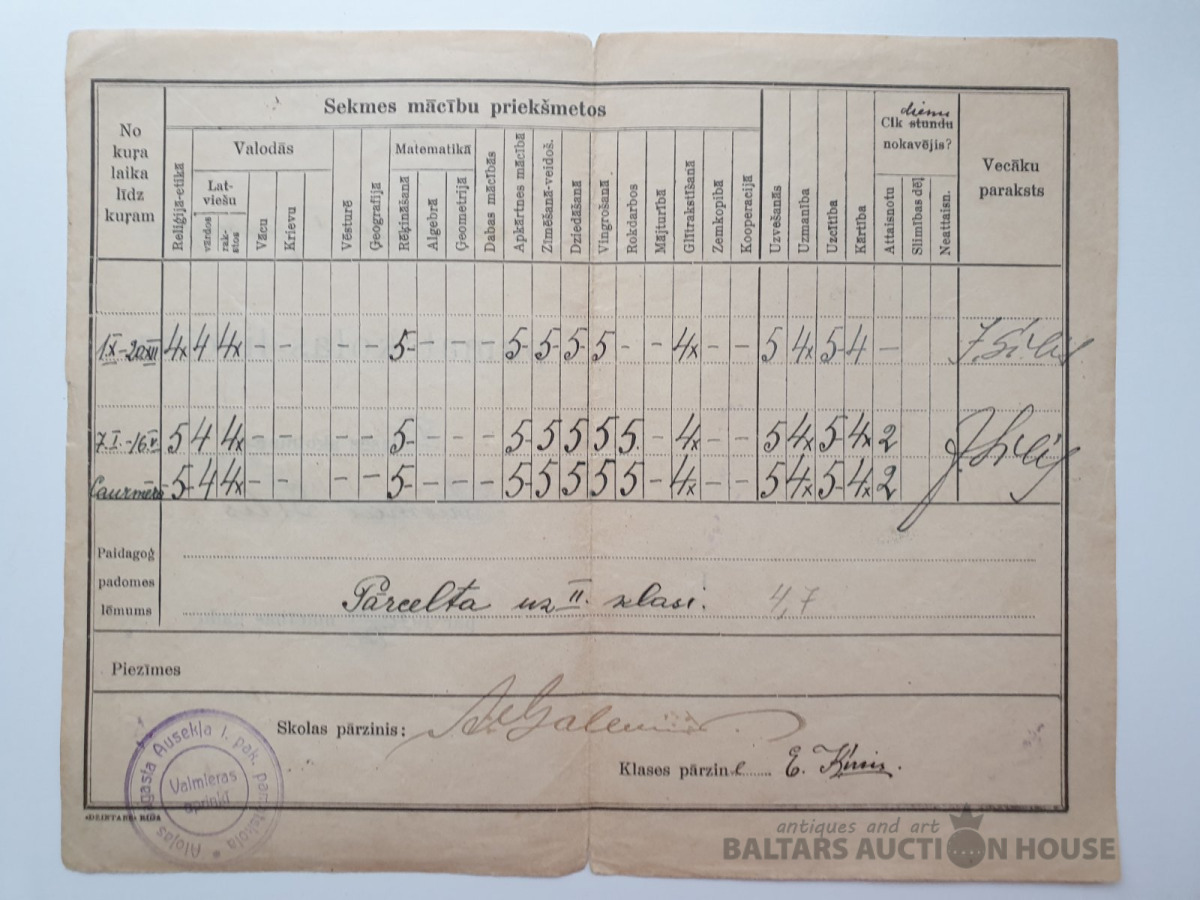 Sekmes mācību priekšmetos
No kuŗa laika līdz kuŗam
Reliģijā-etikā
Valodās
Latviešu
vārdos
rakstos
Vācu
Krievu
Vēsturē
Ģeografijā
Matematikā
Rēķināšanā
Algebrā
Ģeometrijā
Dabas mācībās
Apkārtnes mācībā
Zīmēšanā-veidoš.
Dziedāšanā
Vingrošanā
Rokdarbos
Mājturībā
Glītrakstīšanā
Zemkopībā
Kooperacijā
Uzvešanās
Uzmanība
Uzcītība
Kārtība
dienu
Cik stundu
nokavējis?
Attaisnotu
Slimības dēļ
Neattaisn.
Vecāku
paraksts
1.IX-20.XII 4x 4 4x - - - - 5- - - - 5- 5 5- 5 - - 4x - - 5 4x 5- 4 - J. Sīlis
7.I.-16.V. 5 4 4x - - - - 5- - - - 5- 5 5 5 5. - 4x - - 5 4x 5- 4x 2 J. Sīlis
Caurmērā 5- 4 4x - - - - 5- - - - 5- 5 5 5 5 - 4x - - 5 4x 5- 4x 2
Paidagoģ
padomes
lēmums
Pārcelta uz II. klasi. 4,7
Piezīmes
Skolas pārzinis:
Klases pārzine E. Ķirsis.
Alojas pagasta Ausekļa I. pak. pamatskola *
Valmieras
apriņķī
«DZINTARS» RĪGĀ
antiques and art
BALTARS AUCTION HOUSE